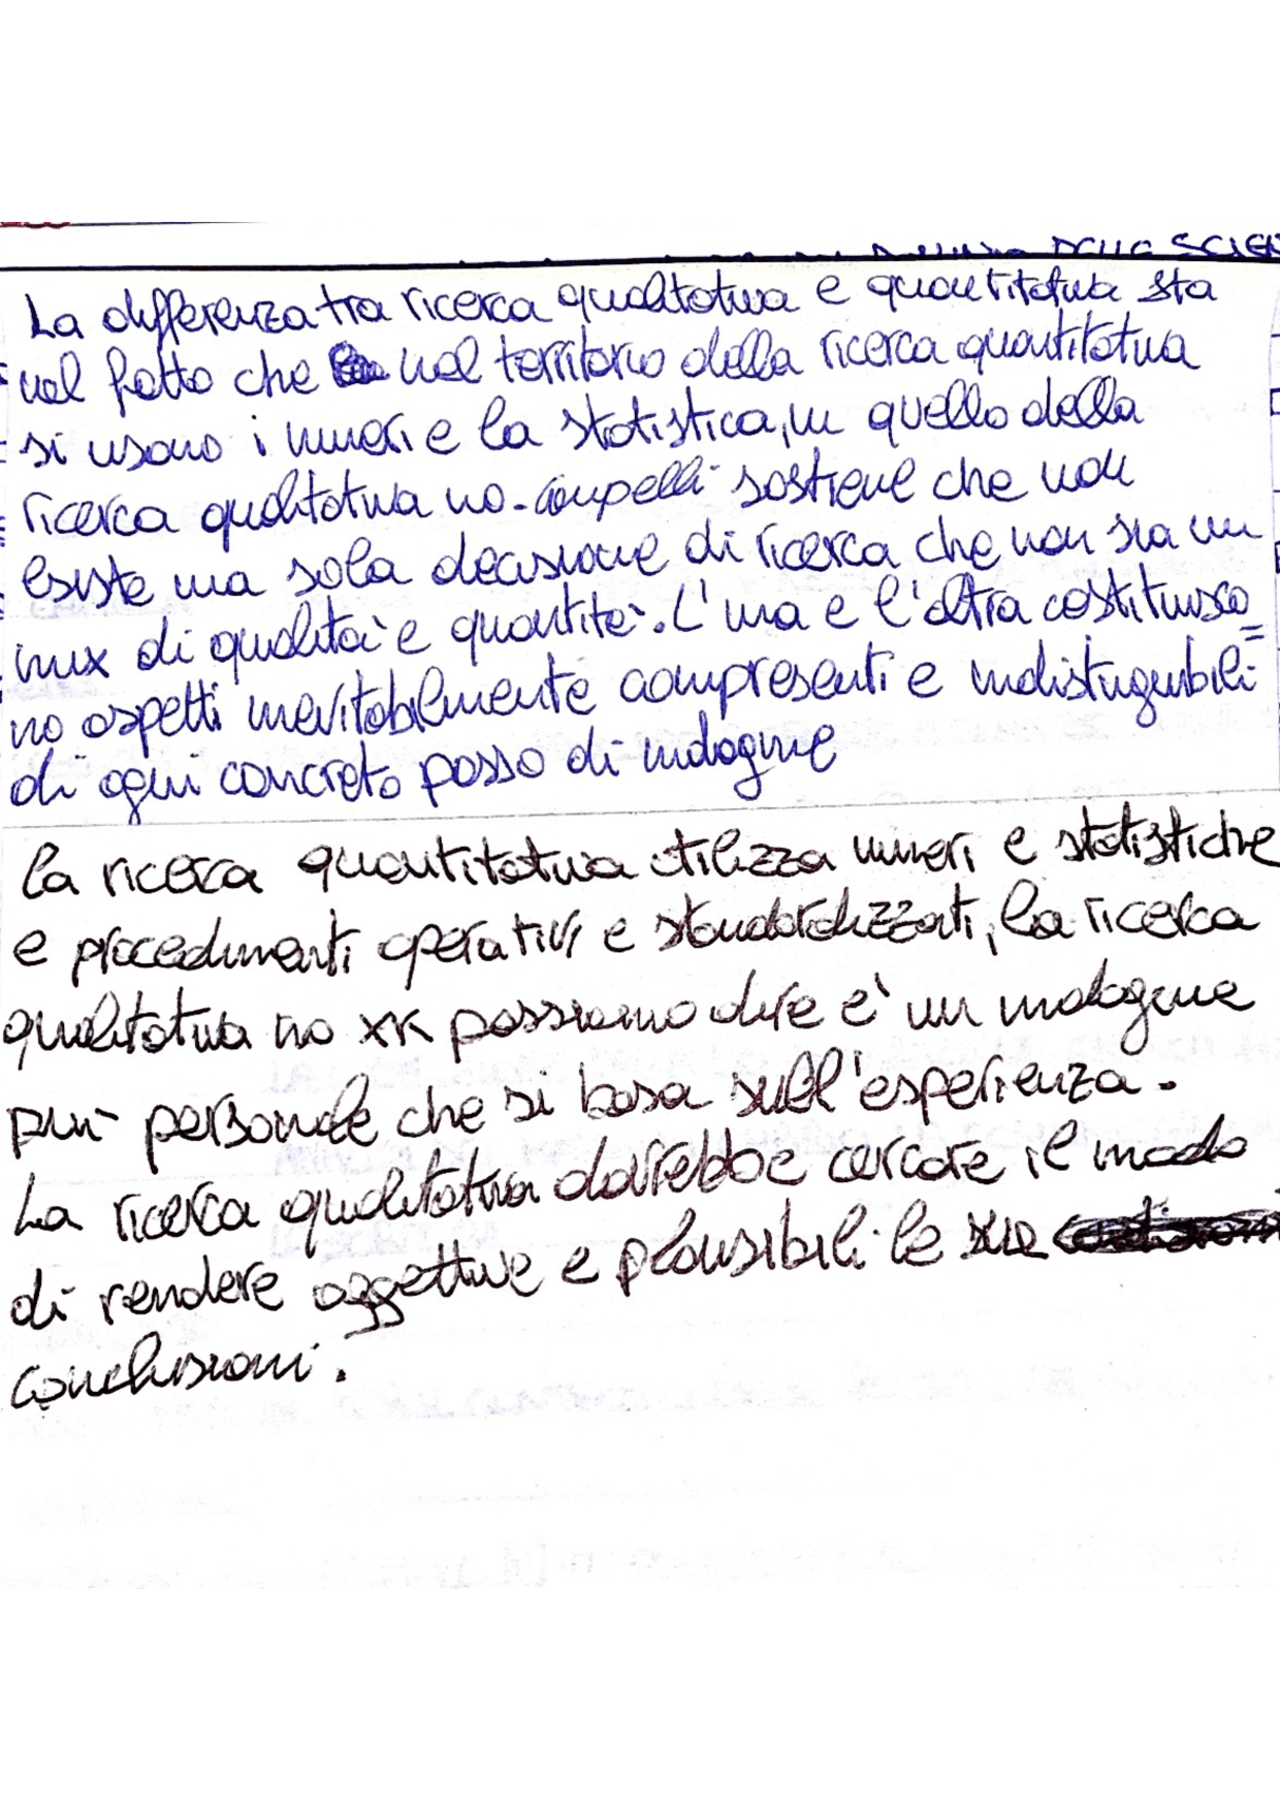 DELLE SCIEN
La differenza tra ricerca qualitativa e quantitativa sta
nel fatto che nel territorio della ricerca quantitativa
si usano i numeri e la statistica, in quello della
ricerca qualitativa no. Campelli sostiene che non
esiste una sola decisione di ricerca che non sia un
mix di qualità e quantità. L'una e l'altra costituisco=
no aspetti inevitabilmente compresenti e indistinguibili
di ogni concreto passo di indagine
la ricerca quantitativa utilizza numeri e statistiche
e procedimenti operativi e standardizzati, la ricerca
qualitativa no xk possiamo dire è un indagine
più personale che si basa sull'esperienza.
La ricerca qualitativa dovrebbe cercare il modo
di rendere oggettive e plausibili le sue
conclusioni.